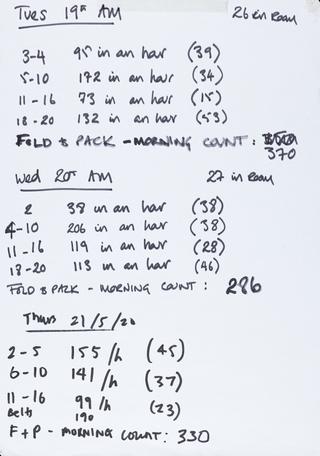 Tues 19th AM 26 in room
3-4 95 in an hour (39)
5-10 172 in an hour (34)
11-16 73 in an hour (15)
18-20 132 in an hour (53)
FOLD & PACK - MORNING COUNT:
370
Wed 20th AM 27 in room
2 38 in an hour (38)
4-10 206 in an hour (38)
11-16 119 in an hour (28)
18-20 113 in an hour (46)
FOLD & PACK - MORNING COUNT: 286
Thurs 21/5/20
2-5 155/h (45)
6-10 141/h (37)
11-16 99/h (23)
Belts 190
F+P - MORNING COUNT: 330